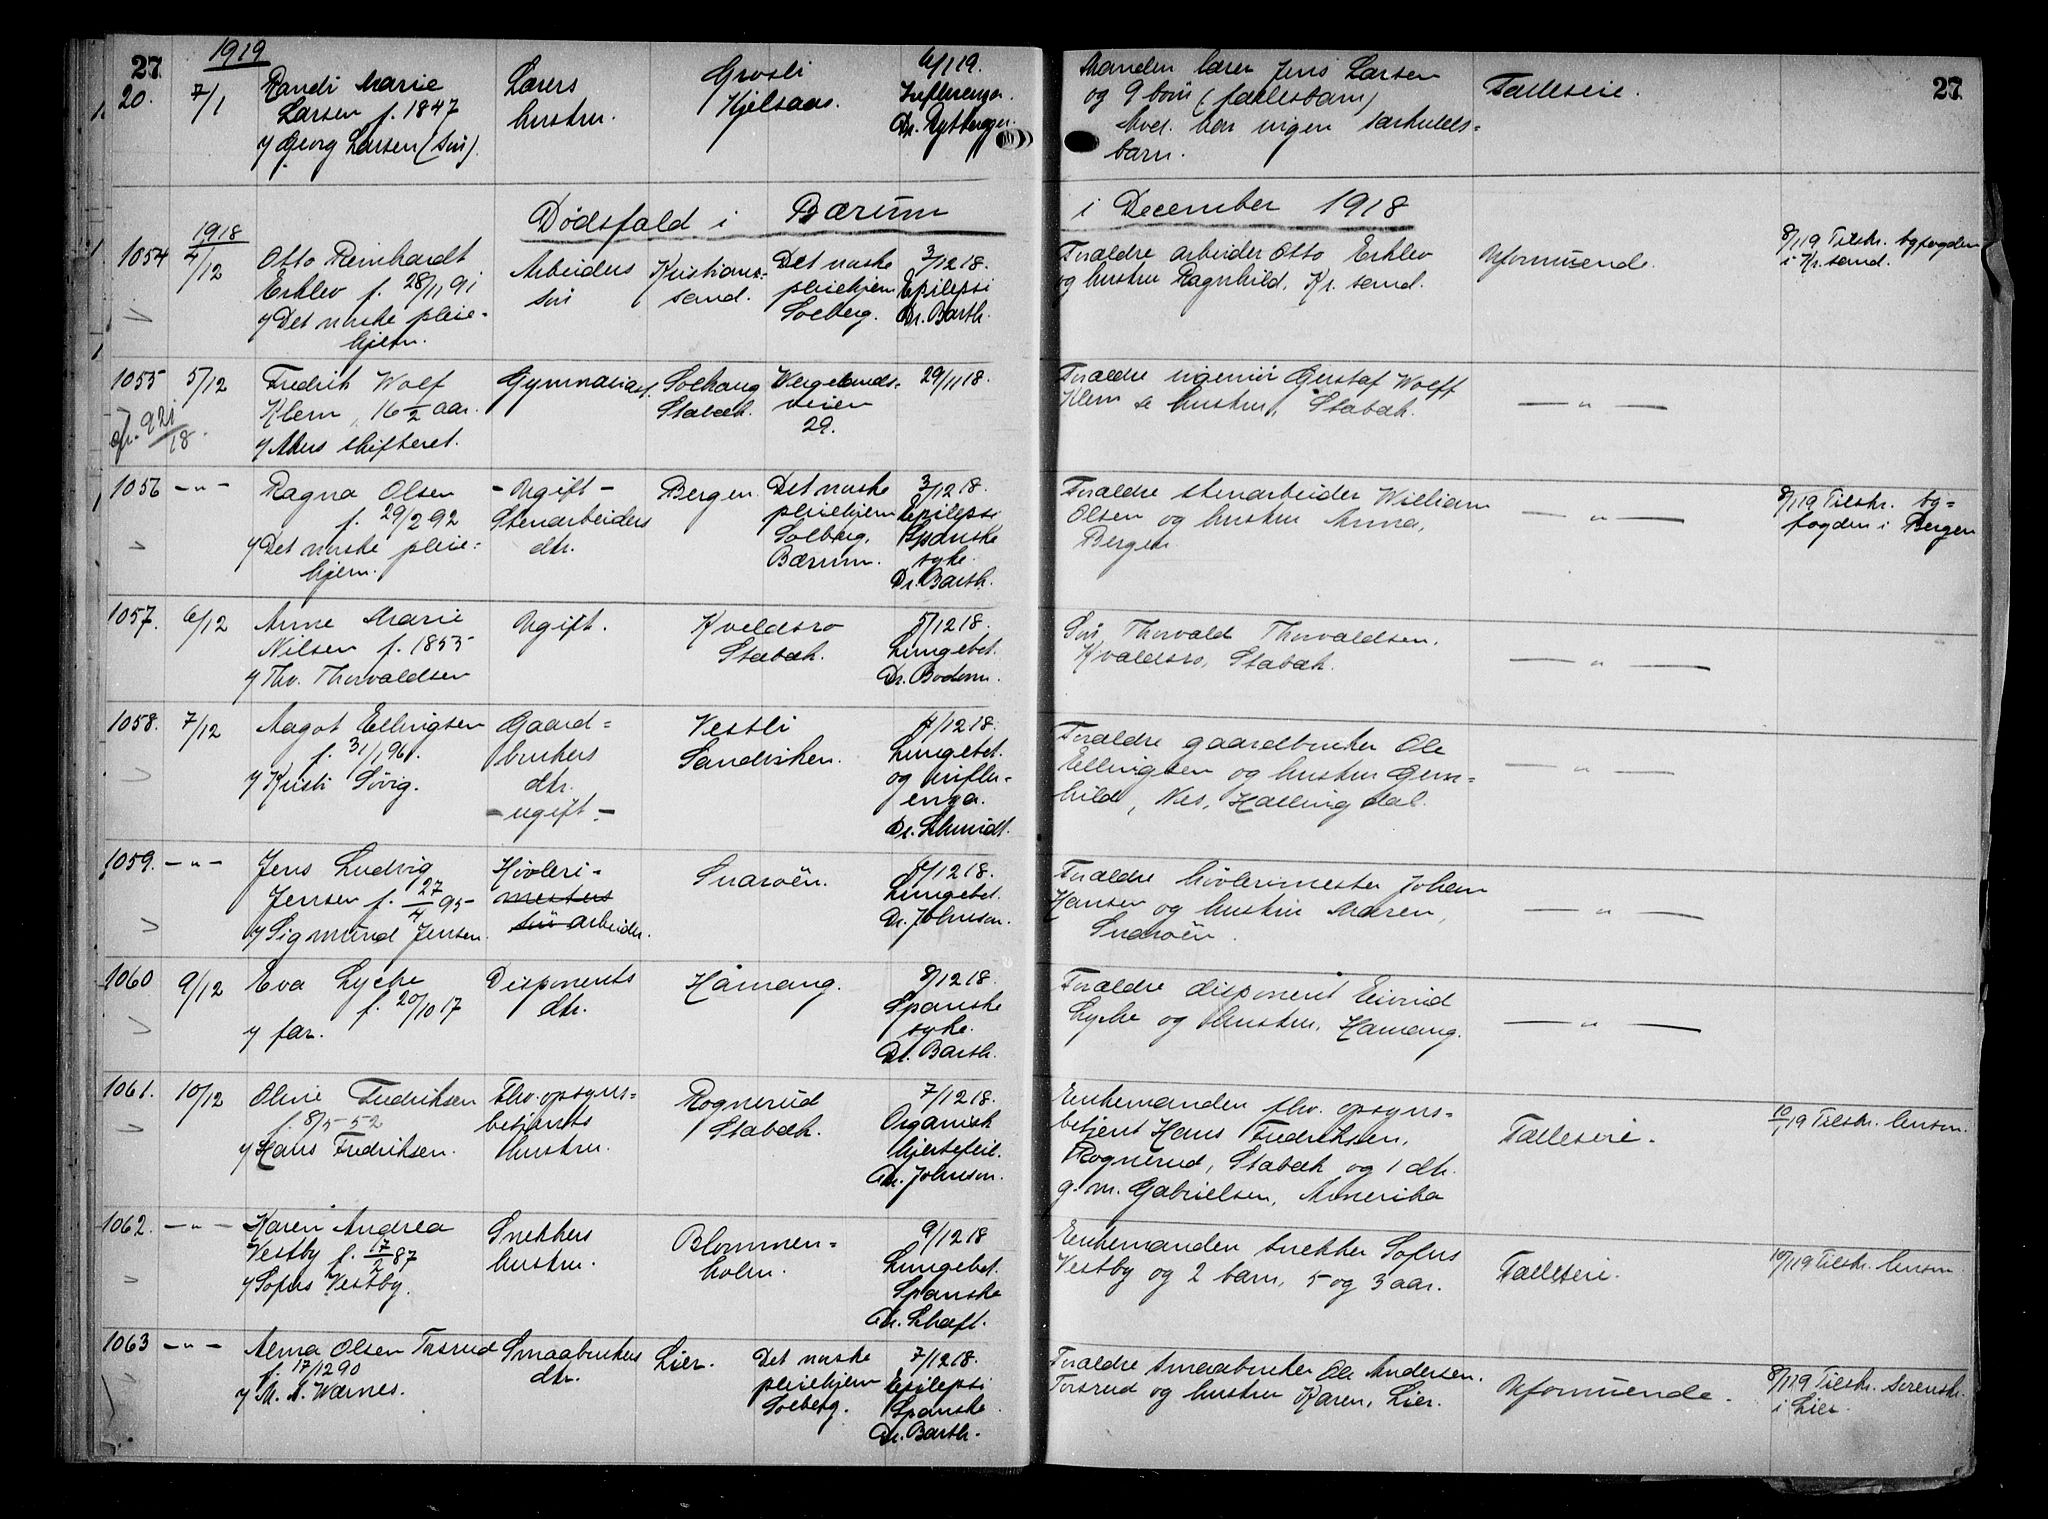 27
1919
20. 7/1 Randi Marie Larsen f. 1847 v/ Georg Larsen (søn).
Lærers hustru.
Grosli Kjelsaas.
6/1 19. Influenza. Dr.
Manden lærer Jens Larsen
og 9 børn (fællesbarn)
Avd. har ingen særkulds=
barn.
Fælleseie.
27
Dødsfald i Bærum i December 1918
1918
1054 4/12 Otto Reinhardt
Erklev f. 28/11 91
v/ Det norske pleie-
hjem.
Arbeiders
søn
Kristian-
sand.
Det norske
pleiehjem
Solberg.
3/12 18.
Epilepsi
Dr. Barth.
Forældre arbeider Otto Erklev
og hustru Ragnhild, Kr. sand.
Uformuende.
8/1 19 Tilskr. byfogden
i Kr. sand.
1055 5/12 Fredrik Wolf
Klem, 16 1/2 aar.
v/ Akers skifteret.
jfr. 921/18.
Gymnasiast.
Solhaug
Stabæk.
Vergelands-
veien
29.
29/11 18.
Forældre ingeniør Gustaf Wolff
Klem & hustru, Stabæk.
— " —
1056 — " — Ragna Olsen
f. 29/2 92
v/ Det norske pleie-
hjem.
- Ugift -
Stenarbeiders
dtr.
Bergen.
Det norske
pleiehjem
Solberg,
Bærum.
3/12 18.
Epilepsi
Spanske
syke.
Dr. Barth.
Forældre stenarbeider William
Olsen og hustru Anna,
Bergen.
— " —
8/1 19 Tilskr. by=
fogden i Bergen
1057. 6/12 Anne Marie
Nilsen f. 1855
v/ Thv. Thorvaldsen
Ugift.
Kveldsro
Stabæk.
5/12 18.
Lungebet.
Dr. Bodom.
Søn, Thorvald Thorvaldsen,
Kvaldsro, Stabæk.
— " —
1058. 7/12 Aagot Ellingsen
f. 31/1 96.
v/ Kristi Søvig.
Gaard=
brukers
dtr.
- ugift. -
Vestli
Sandviken.
4/12 18.
Lungebet.
og influ-
enza.
Dr. Schmidt.
Forældre gaardbruker Ole
Ellingsen og hustru Gun=
hild, Nes, Hallingdal.
— " —
1059. — " — Jens Ludvig
Jensen f. 27/4 95
v/ Sigmund Jensen.
Høvleri-
mesters
søn arbeider.
Snarøen.
6/12 18.
Lungebet.
Dr. Johnson.
Forældre høvlerimester Johan
Hansen og hustru Maren,
Snarøen.
— " —
1060 9/12 Eva Lyche
f. 20/10 17
v/ far.
Disponents
dtr.
Hamang.
8/12 18.
Spanske
syke.
Dr. Barth.
Forældre disponent Eivind
Lyche og hustru, Hamang.
— " —
1061. 10/12 Oline Fredriksen
f. 8/5 52
v/ Hans Fredriksen.
Fhv. opsyns=
betjents
hustru.
Rognerud
Stabæk.
7/12 18.
Organisk
hjertefeil.
Dr. Johnson.
Enkemanden fhv. opsyns=
betjent Hans Fredriksen,
Rognerud, Stabæk og 1 dtr.
g. m. Gabrielsen, Amerika
Fælleseie.
10/1 19 Tilskr. lensm.
1062. — " — Karen Andrea
Vestby f. 17/2 87
v/ Sofus Vestby.
Snekkers
hustru.
Blommen=
holm.
9/12 18
Lungebet.
Spanske
Dr. Schaft.
Enkemanden snekker Sofus
Vestby og 2 barn, 5 og 3 aar.
Fælleseie.
10/1 19 Tilskr. lensm.
1063 — " — Alma Olsen Torsrud
f. 17/12 90
v/ M. A. Wærnes.
Smaabrukers
dtr.
Lier.
Det norske
pleiehjem
Solberg.
7/12 18.
Epilepsi
Spanske.
Dr. Barth.
Forældre smaabruker Ole Andersen
Torsrud og hustru Karen, Lier.
Uformuende.
8/1 19 Tilskr. sorenskr.
i Lier.